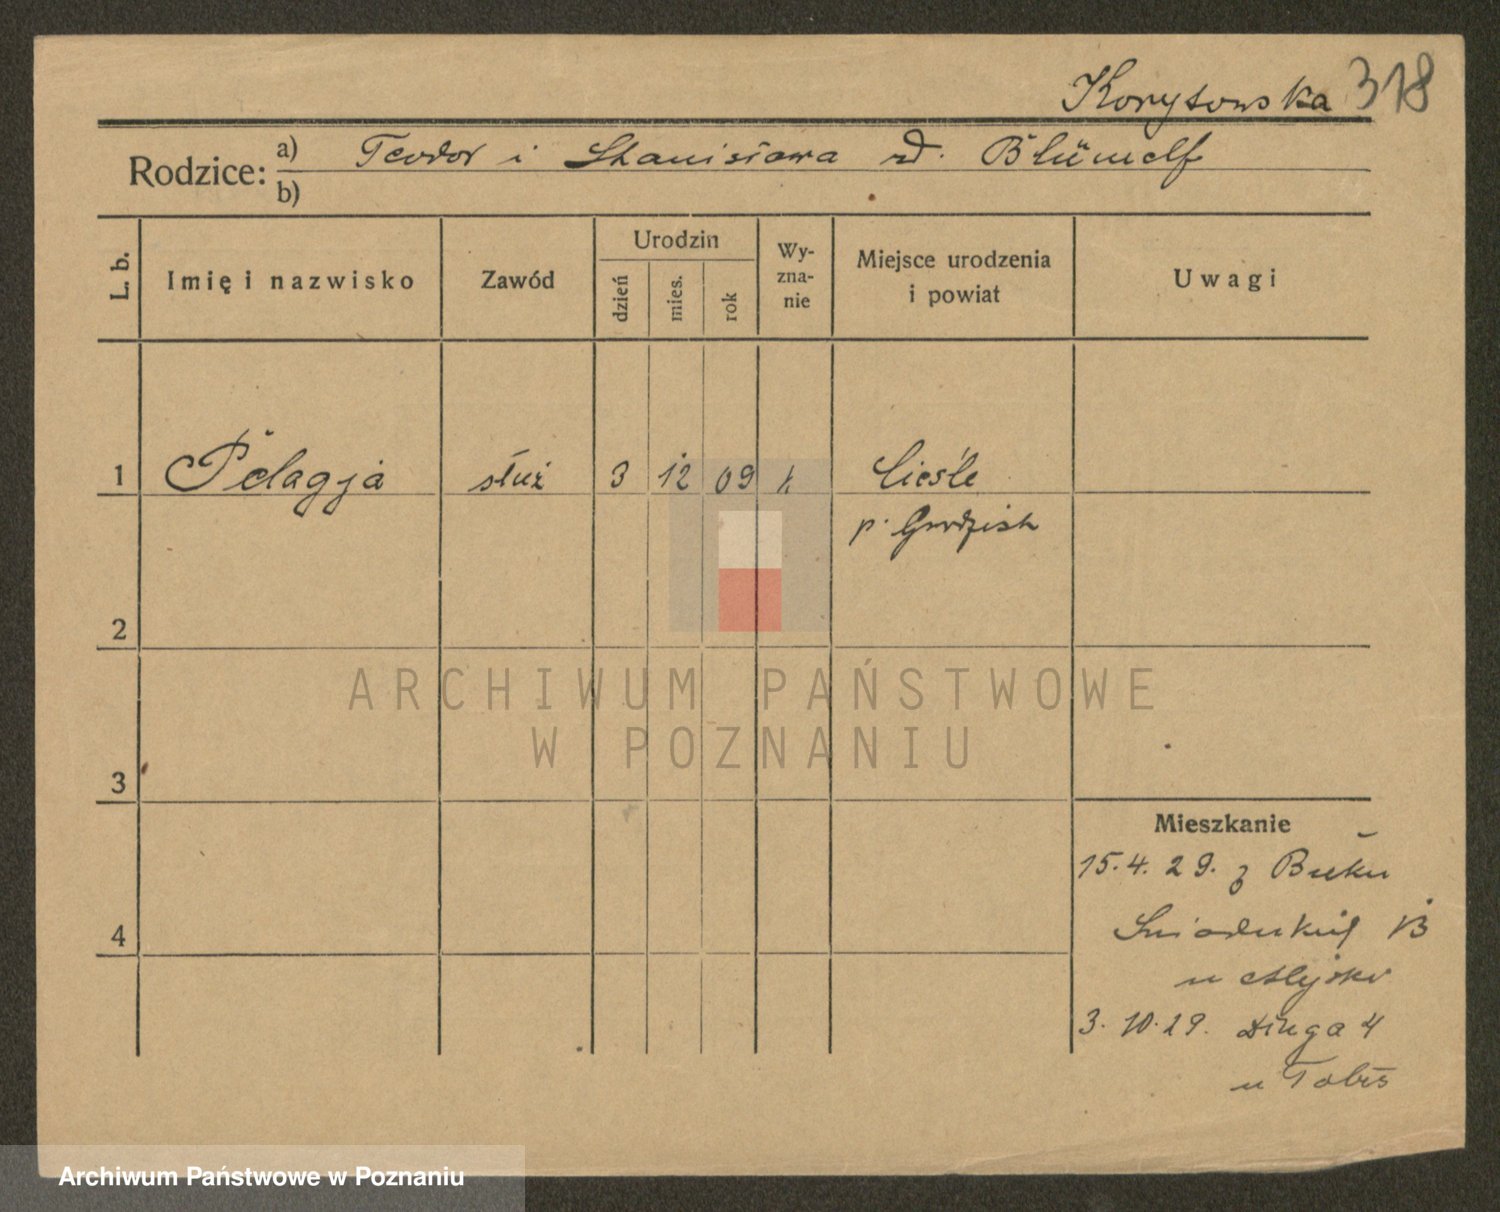 Korytowska 318
Rodzice: a) Teodor i Stanisława zd. Blümelf
b)
L. b.
Imię i nazwisko
Zawód
Urodzin
dzień
mies.
rok
Wy-
zna-
nie
Miejsce urodzenia
i powiat
Uwagi
1 Pelagja służ 3 12 09 k Cieśle
p. Grodzisk
2
3
4
Mieszkanie
15.4.29. z Buku
13
u
3.10.29. Długa 4
u
ARCHIWUM PAŃSTWOWE
W POZNANIU
Archiwum Państwowe w Poznaniu